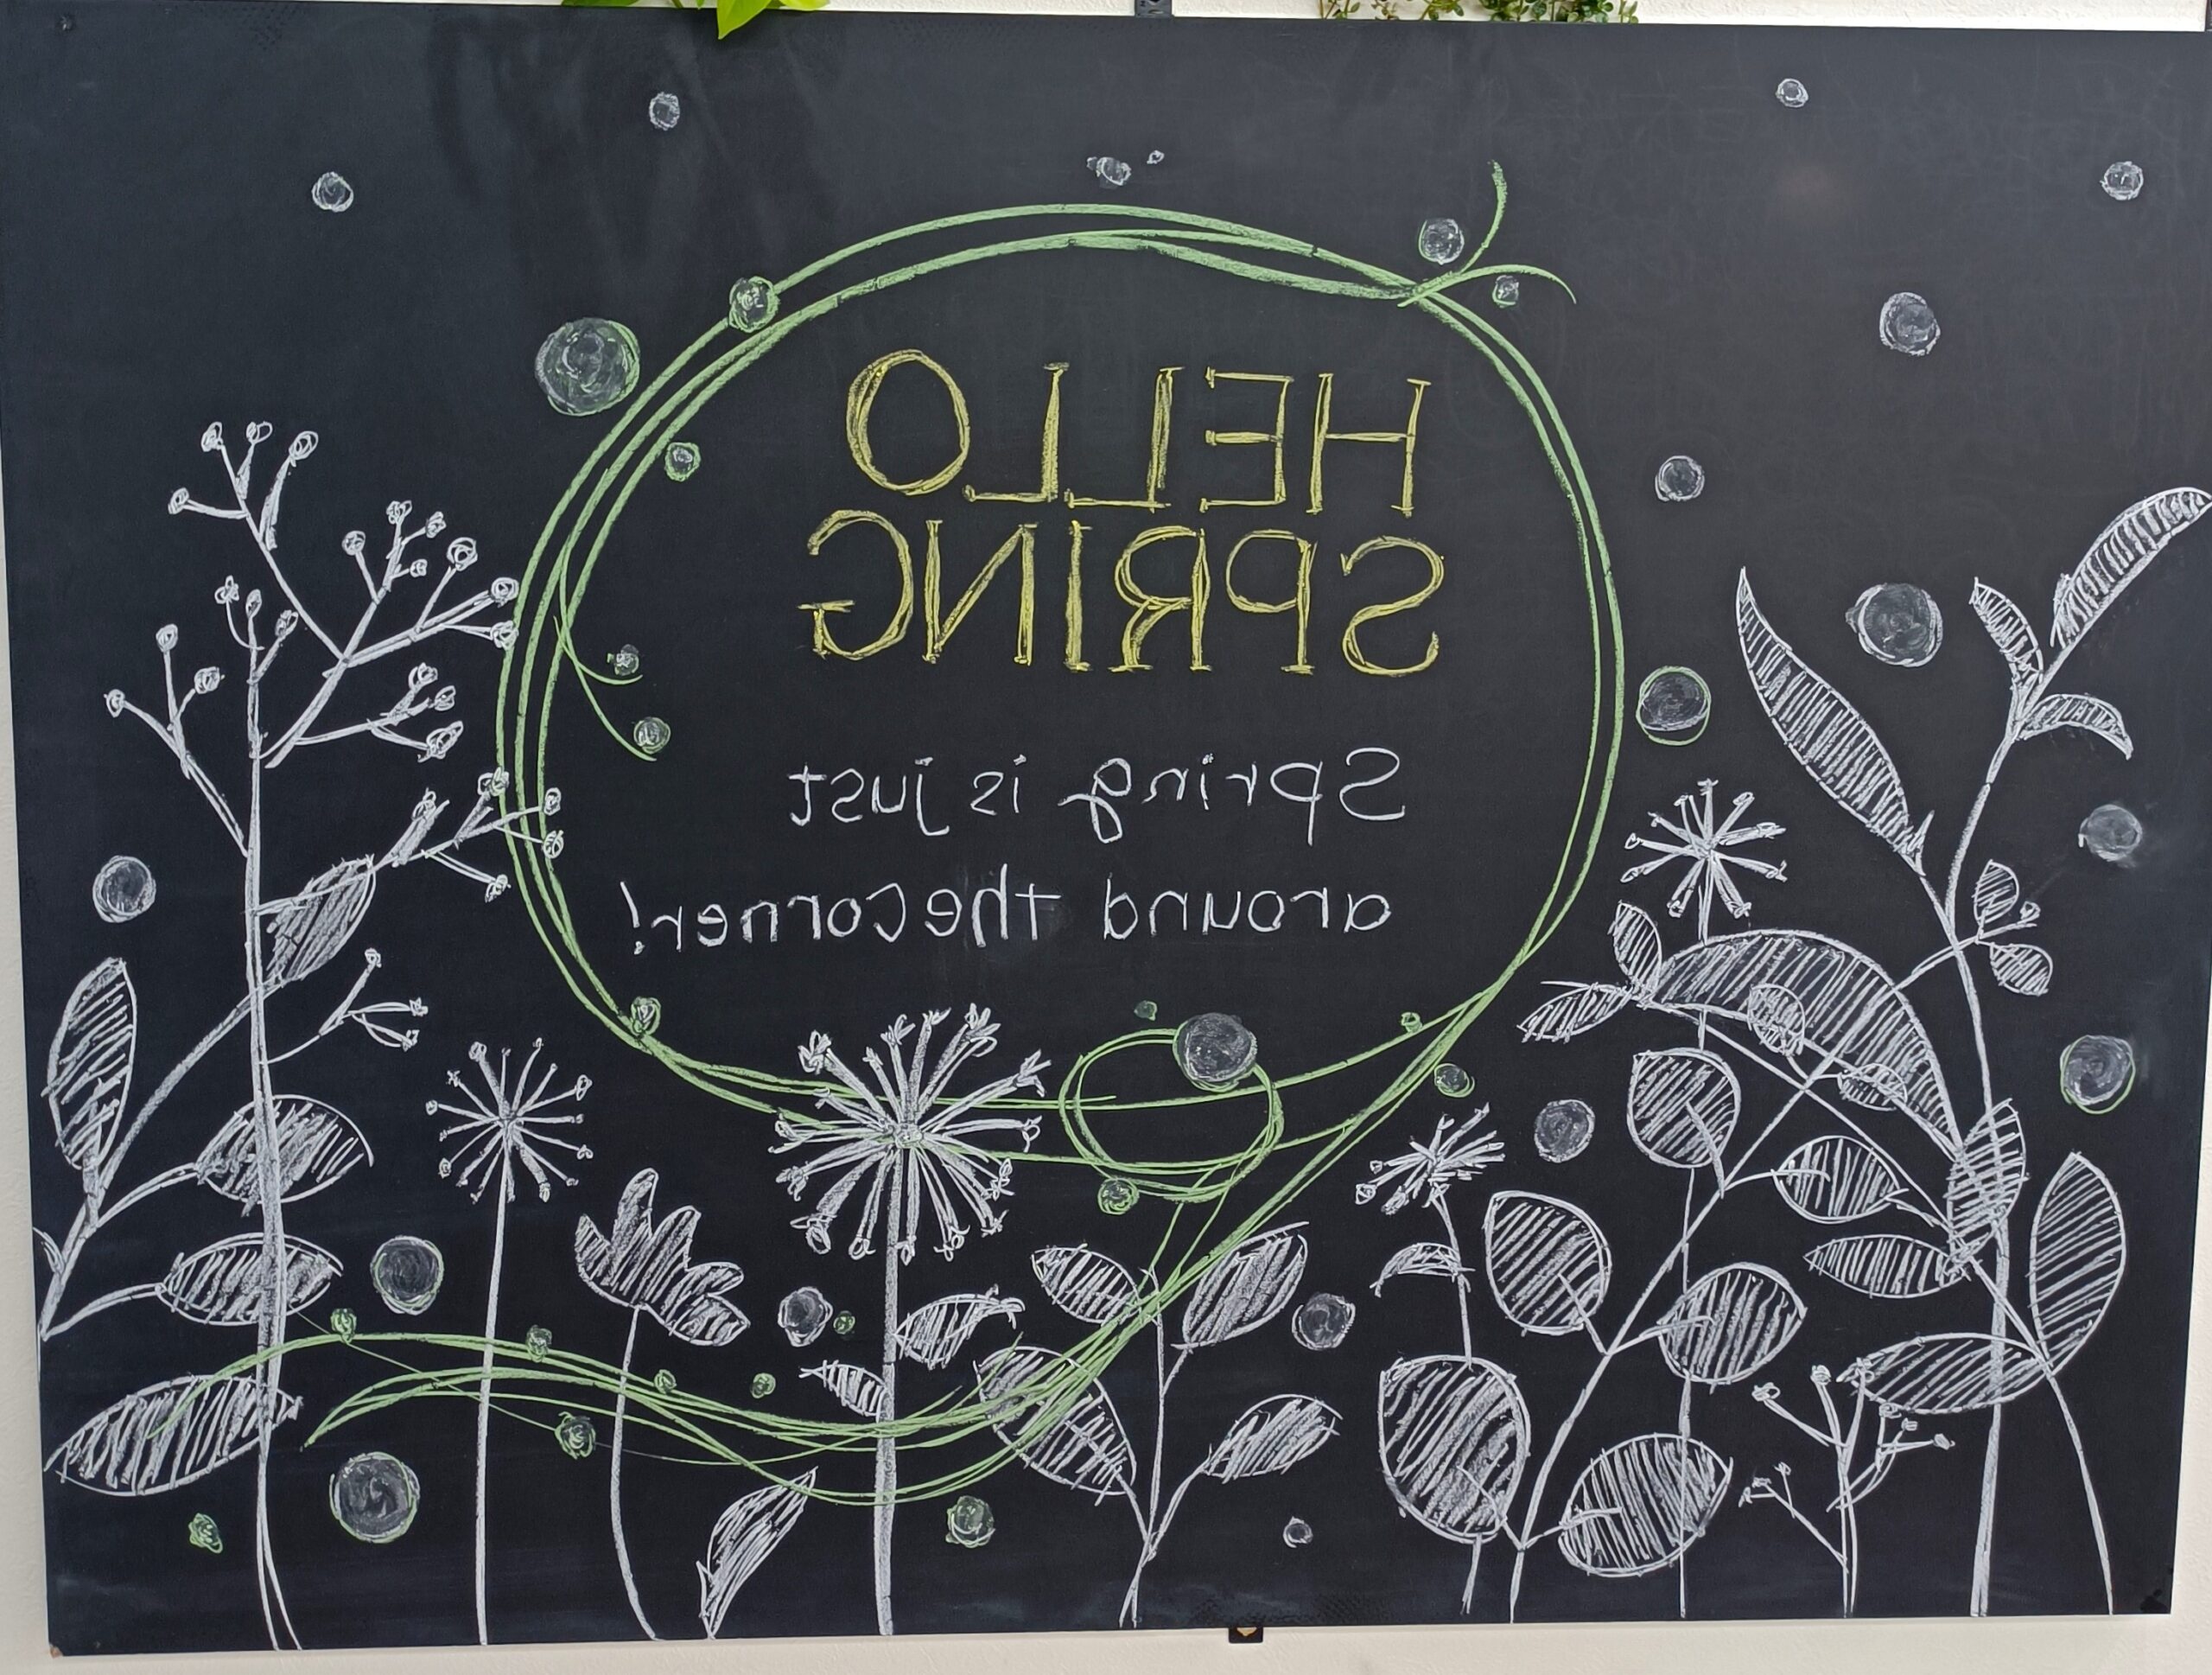 HELLO
SPRING
Spring is just
around the corner!